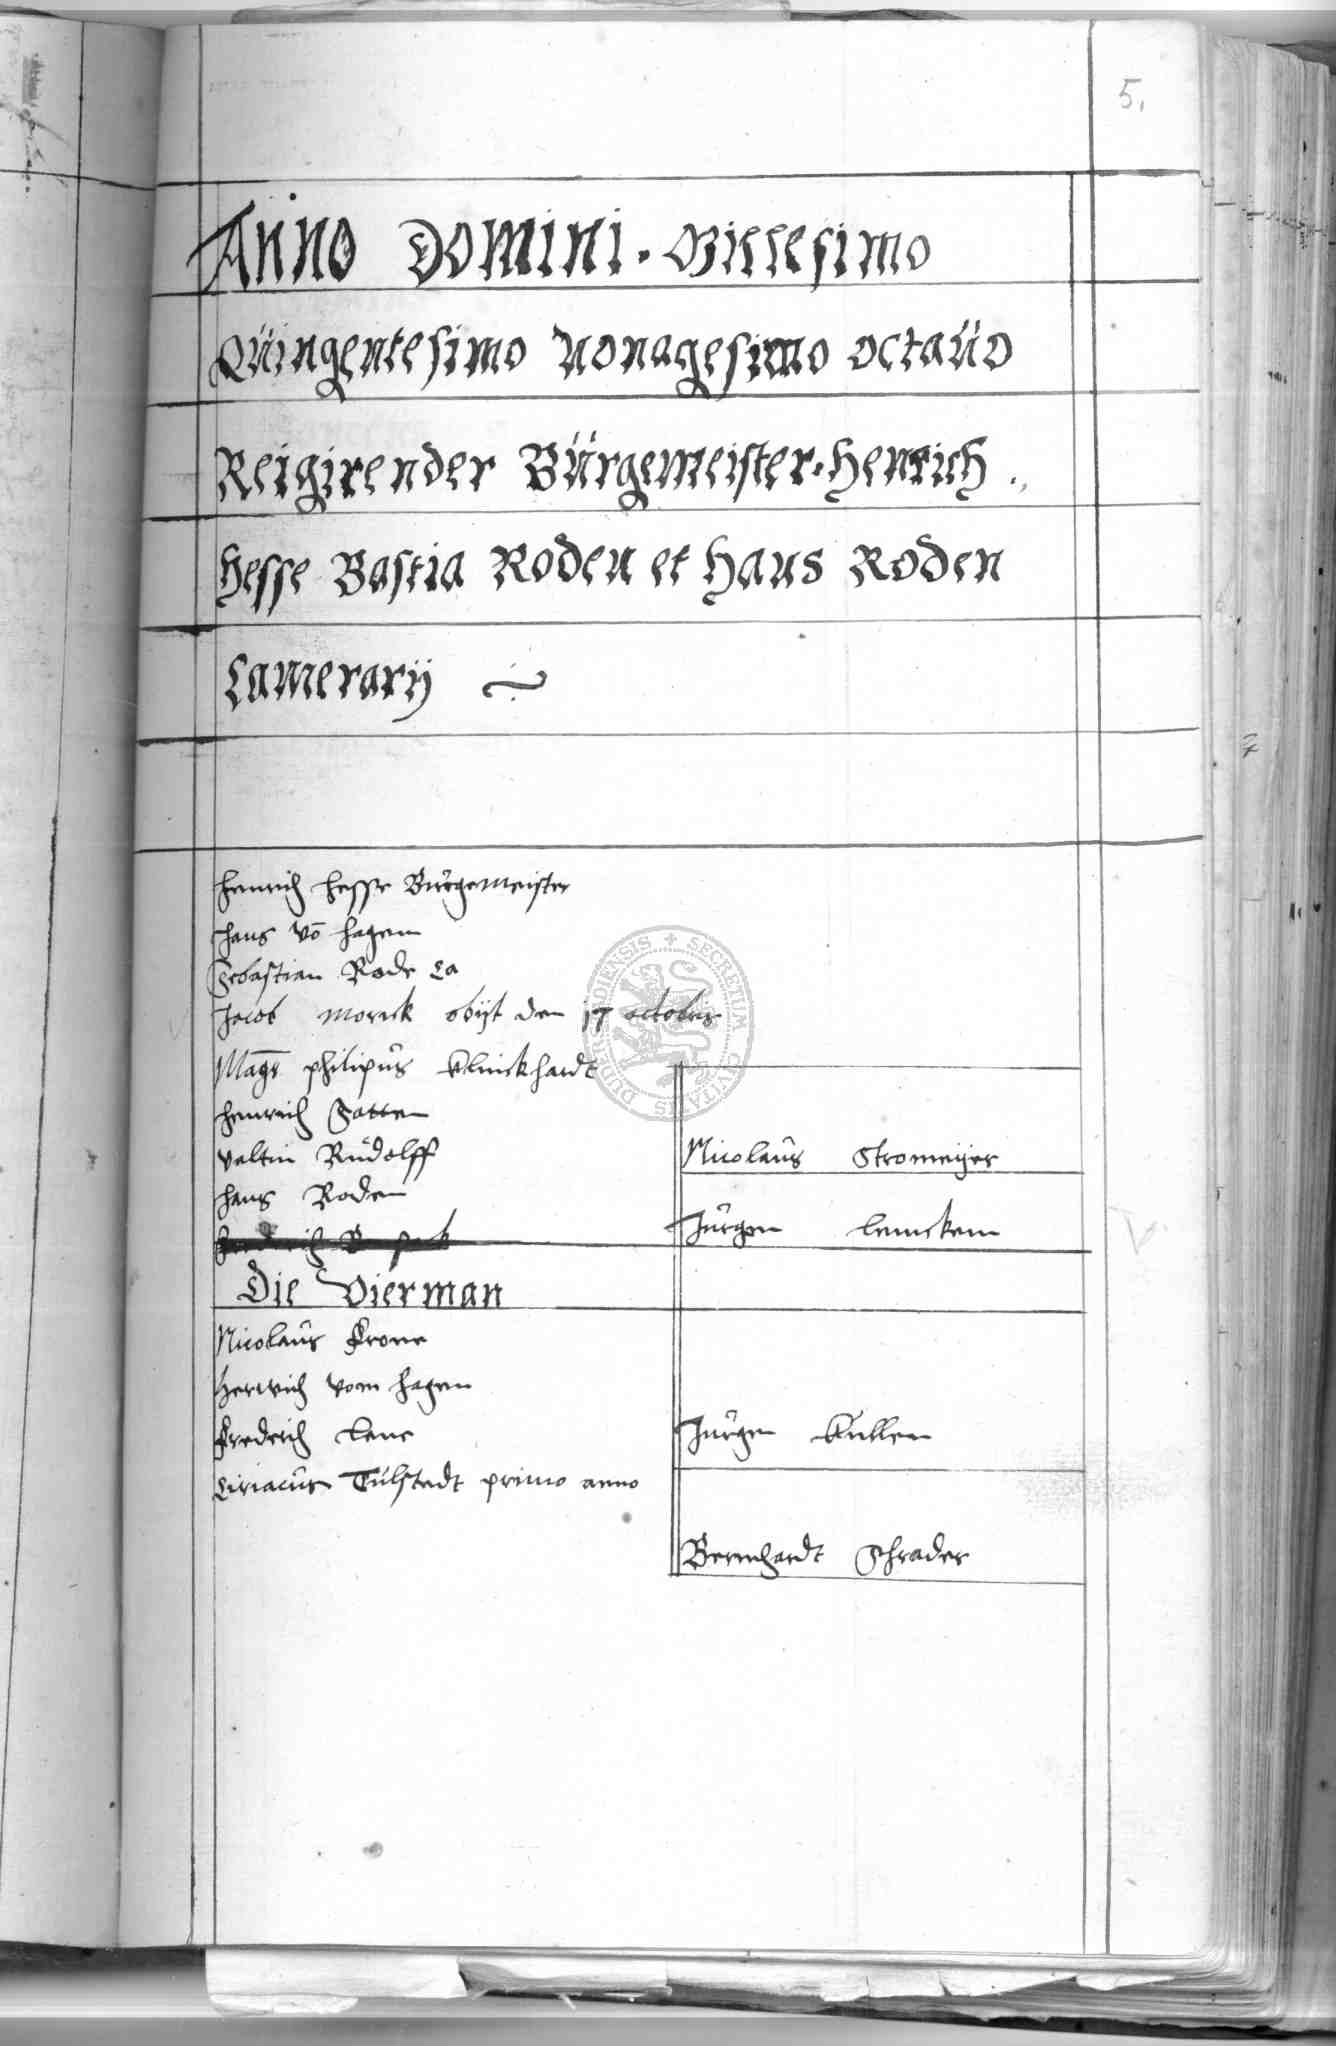 5.
Anno Domini. Millesimo
Quingentesimo Nonagesimo octaüo
Reigirender Bürgemeister. Henrich.
Hesse Bastia Roden et Hans Roden
Camerarij
Henrich Hesse Bürgemeister
Hans vō Hagen
Sebastian Rode Ca
Jacob Morick obijt den 17 octobris
Magr philipus Klinckhardt
Henrich
Valtin Rudolff
Hans Roden
Die Vierman
Nicolaus Krone
Hertwich vom Hagen
Frederich Lene
Ciriacus Tülstedt primo anno
Nicolaus Stromeijer
Jürgen Lenicken
Jürgen Küllen
Bernhardt Schrader
SECRETUM CIVITATIS DUDERSTADIENSIS